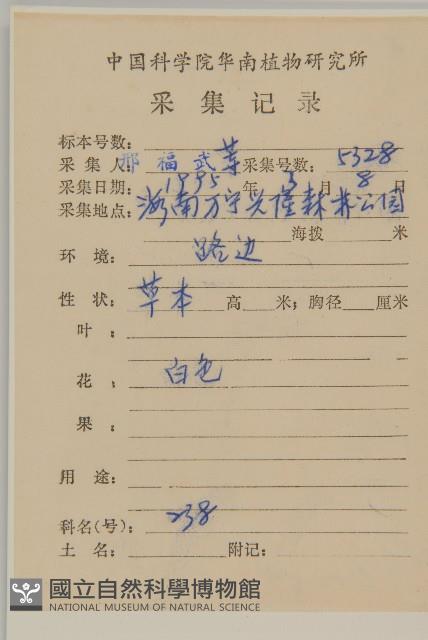 中国科学院华南植物研究所
采集记录
标本号数:
采集人: 邢福武等 采集号数: 5328
采集日期: 1995 年 3 月 8 日
采集地点: 海南万宁兴隆森林公园
海拨 米
环境: 路边
性状: 草本 高 米; 胸径 厘米
叶:
花: 白色
果:
用途:
科名(号): 238
土名: 附记:
國立自然科學博物館
NATIONAL MUSEUM OF NATURAL SCIENCE